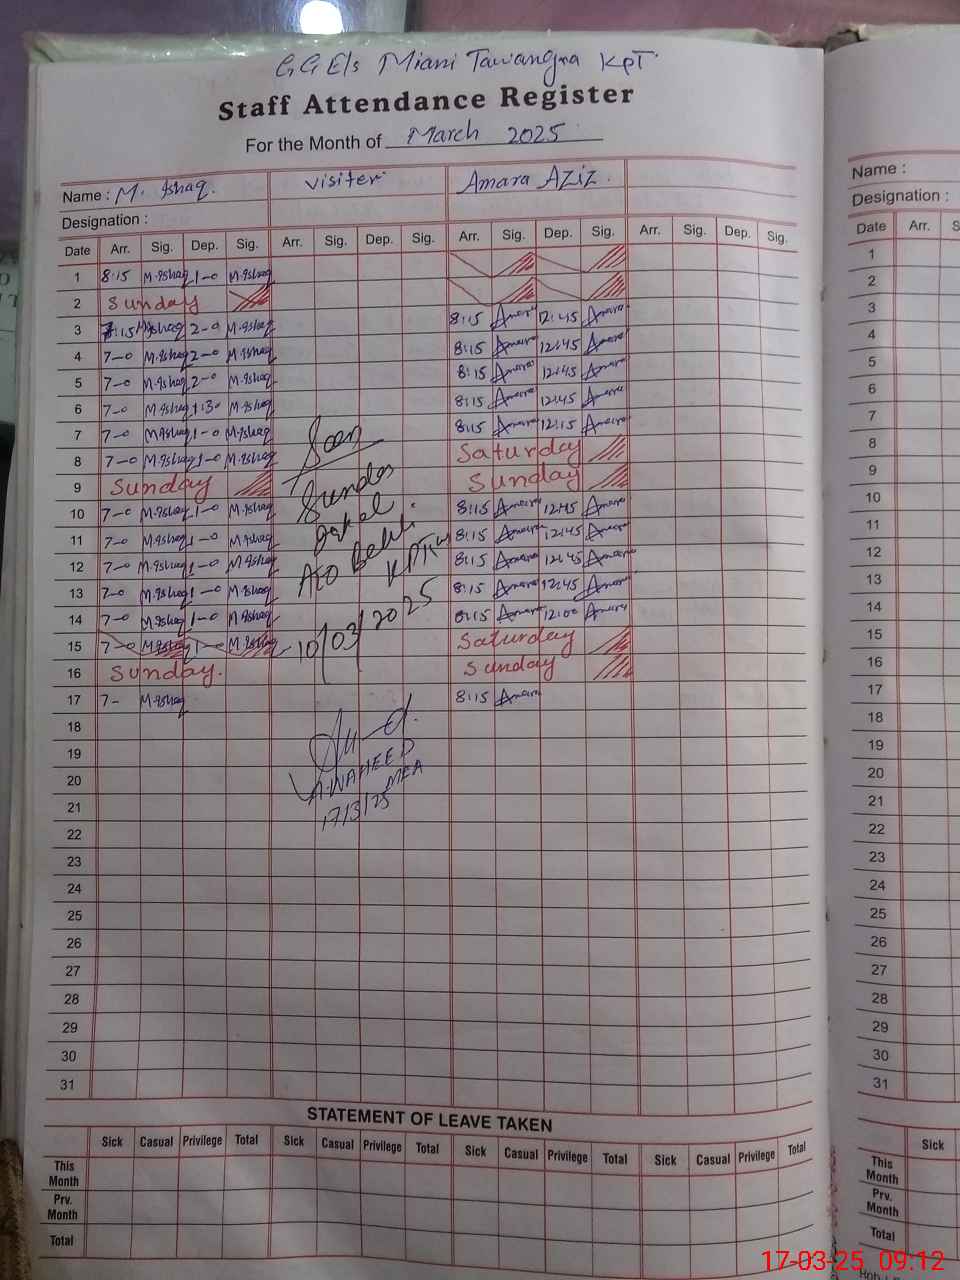 GGE/s Miani Tawangra KPT.
Staff Attendance Register
For the Month of March 2025
Name : M. Ishaq. visiter Amara AZiZ.
Designation :
Date Arr. Sig. Dep. Sig. Arr. Sig. Dep. Sig. Arr. Sig. Dep. Sig. Arr. Sig. Dep. Sig.
1 8:15 M.Ishaq 1-0 M.Ishaq
2 Sunday
3 7:15 M.Ishaq 2-0 M.Ishaq 8:15 Amara 12:45 Amara
4 7-0 M.Ishaq 2-0 M.Ishaq 8:15 Amara 12:45 Amara
5 7-0 M.Ishaq 2-0 M.Ishaq 8:15 Amara 12:45 Amara
6 7-0 M.Ishaq 1:30 M.Ishaq 8:15 Amara 12:45 Amara
7 7-0 M.Ishaq 1-0 M.Ishaq 8:15 Amara 12:15 Amara
8 7-0 M.Ishaq 1-0 M.Ishaq Saturday
9 Sunday Sunday
10 7-0 M.Ishaq 1-0 M.Ishaq 8:15 Amara 12:45 Amara
11 7-0 M.Ishaq 1-0 M.Ishaq 8:15 Amara 12:45 Amara
12 7-0 M.Ishaq 1-0 M.Ishaq 8:15 Amara 12:45 Amara
13 7-0 M.Ishaq 1-0 M.Ishaq 8:15 Amara 12:45 Amara
14 7-0 M.Ishaq 1-0 M.Ishaq 8:15 Amara 12:00 Amara
15 7-0 M.Ishaq 1-0 M.Ishaq Saturday
16 Sunday. Sunday
17 7- M.Ishaq 8:15 Amara
Seen
AEO
10/03/2025
18
19
A.WAHEED
20
MEA
21
17/3/25
22
23
24
25
26
27
28
29
30
31
STATEMENT OF LEAVE TAKEN
Sick Casual Privilege Total Sick Casual Privilege Total Sick Casual Privilege Total Sick Casual Privilege Total
This
Month
Prv.
Month
Total
Name :
Designation :
Date Arr. S
1
2
3
4
5
6
7
8
9
10
11
12
13
14
15
16
17
18
19
20
21
22
23
24
25
26
27
28
29
30
31
Sick
This
Month
Prv.
Month
Total
17-03-25 09:12